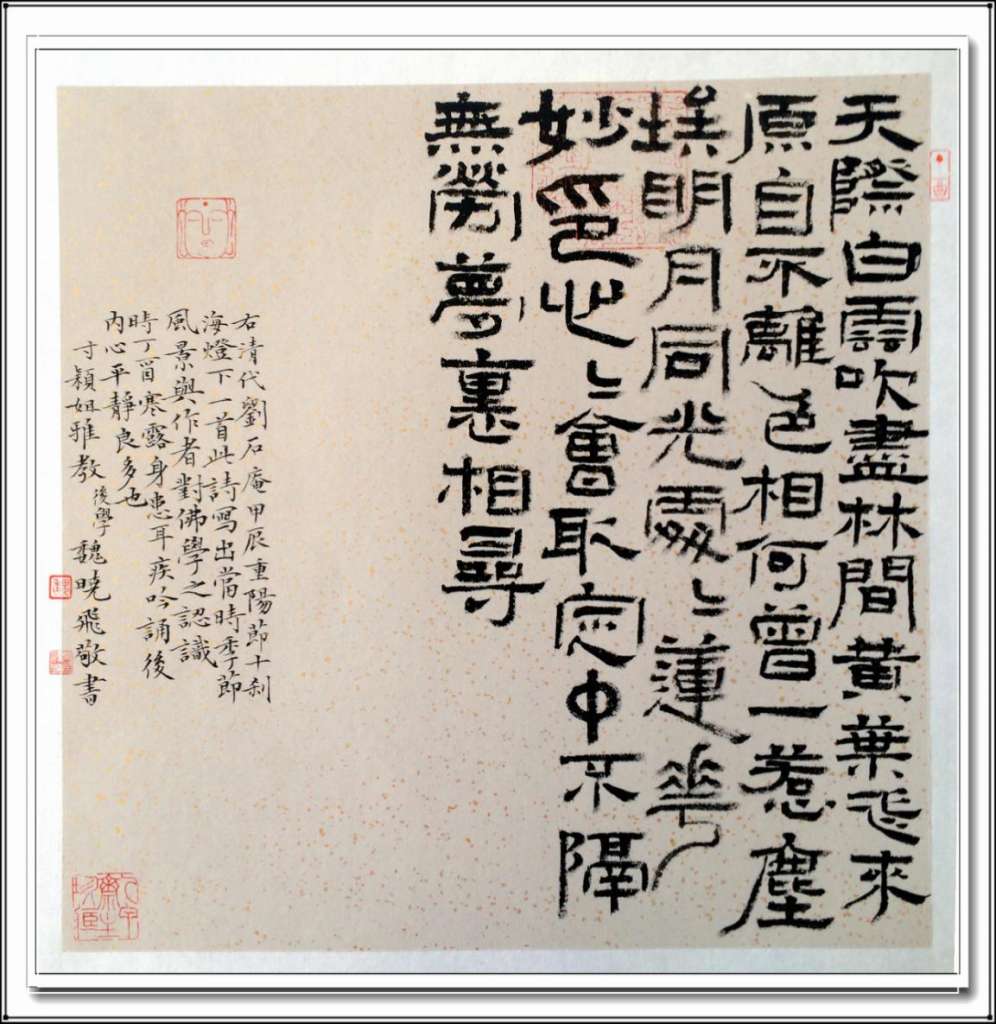 天際白雲吹盡林間黃葉飛來
原自不離色相何曾一惹塵
埃明月同光處〻蓮華
妙印心〻會取定中不隔
無勞夢裏相尋
右清代劉石庵甲辰重陽節十刹
海燈下一首此詩寫出當時季節
風景與作者對佛學之認識
時丁酉寒露身患耳疾吟誦後
內心平靜良多也
寸穎姐雅教 後學魏曉飛敬書